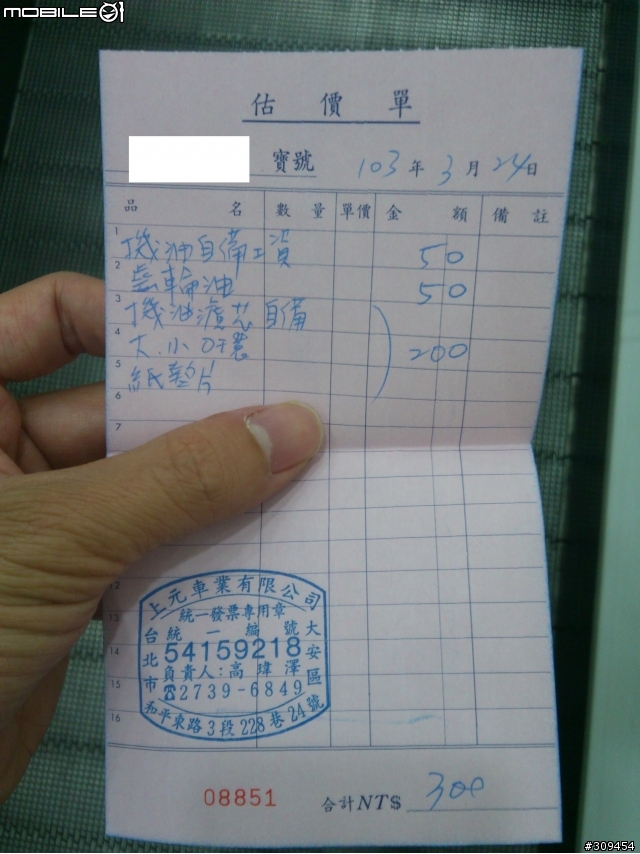 MOBILE01
估價單
寶號 103年3月24日
品名 數量 單價 金額 備註
1 機油自備工資 50
2 齒輪油 50
3 機油濾芯自備
4 大.小O環 200
5 紙墊片
6
7
12
13
14
15
16
上元車業有限公司
統一發票專用章
統一編號
54159218
負責人:高瑋澤
☎2739-6849
台北市大安區
和平東路3段228巷24號
08851 合計NT$ 300
#309454